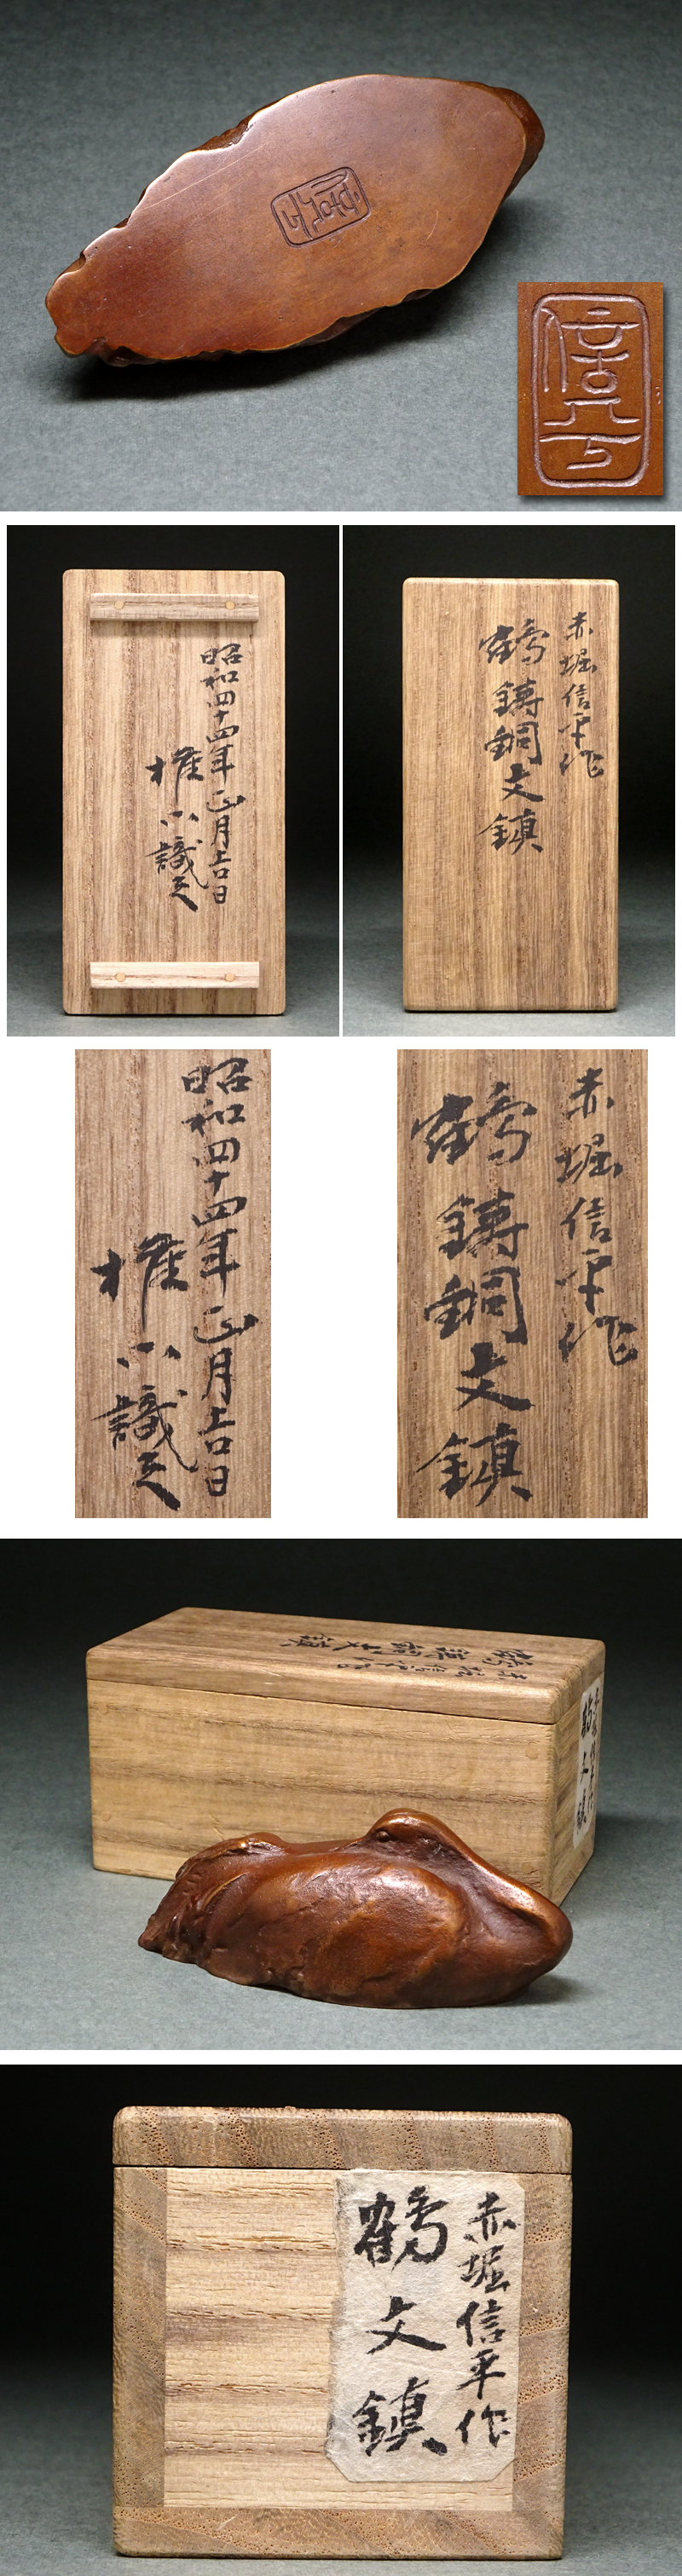 信平
昭和四十四年正月吉日
惟小識之
赤堀信平作
鶴鋳銅文鎮
昭和四十四年正月吉日
識之
赤堀信平作
鶴鋳銅文鎮
赤堀信平作
鶴鋳銅文鎮
赤堀信平作
鶴文鎮
赤堀信平作
鶴文鎮